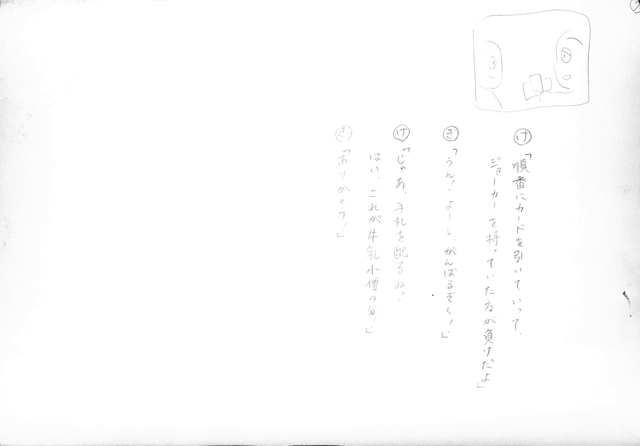 け「順番にカードを引いていって、
ジョーカーを持っていた方が負けだよ」
き「うん!よーし、がんばるぞぐ!」
け「じゃあ、手札を配るね!
はい、これが牛乳小僧の分!」
き「ありがとう!」